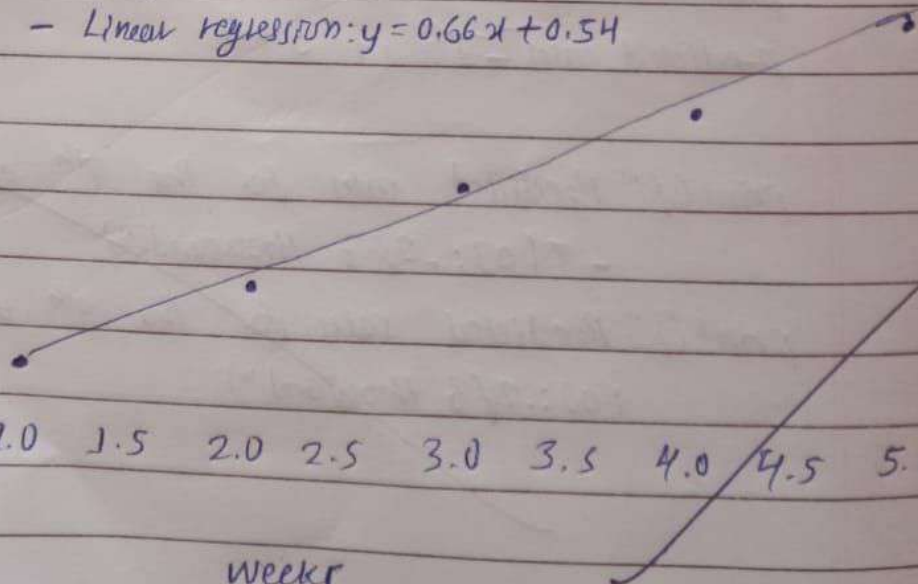 - Linear regression: y = 0.66x + 0.54
1.0 1.5 2.0 2.5 3.0 3.5 4.0 4.5 5.
Weeks